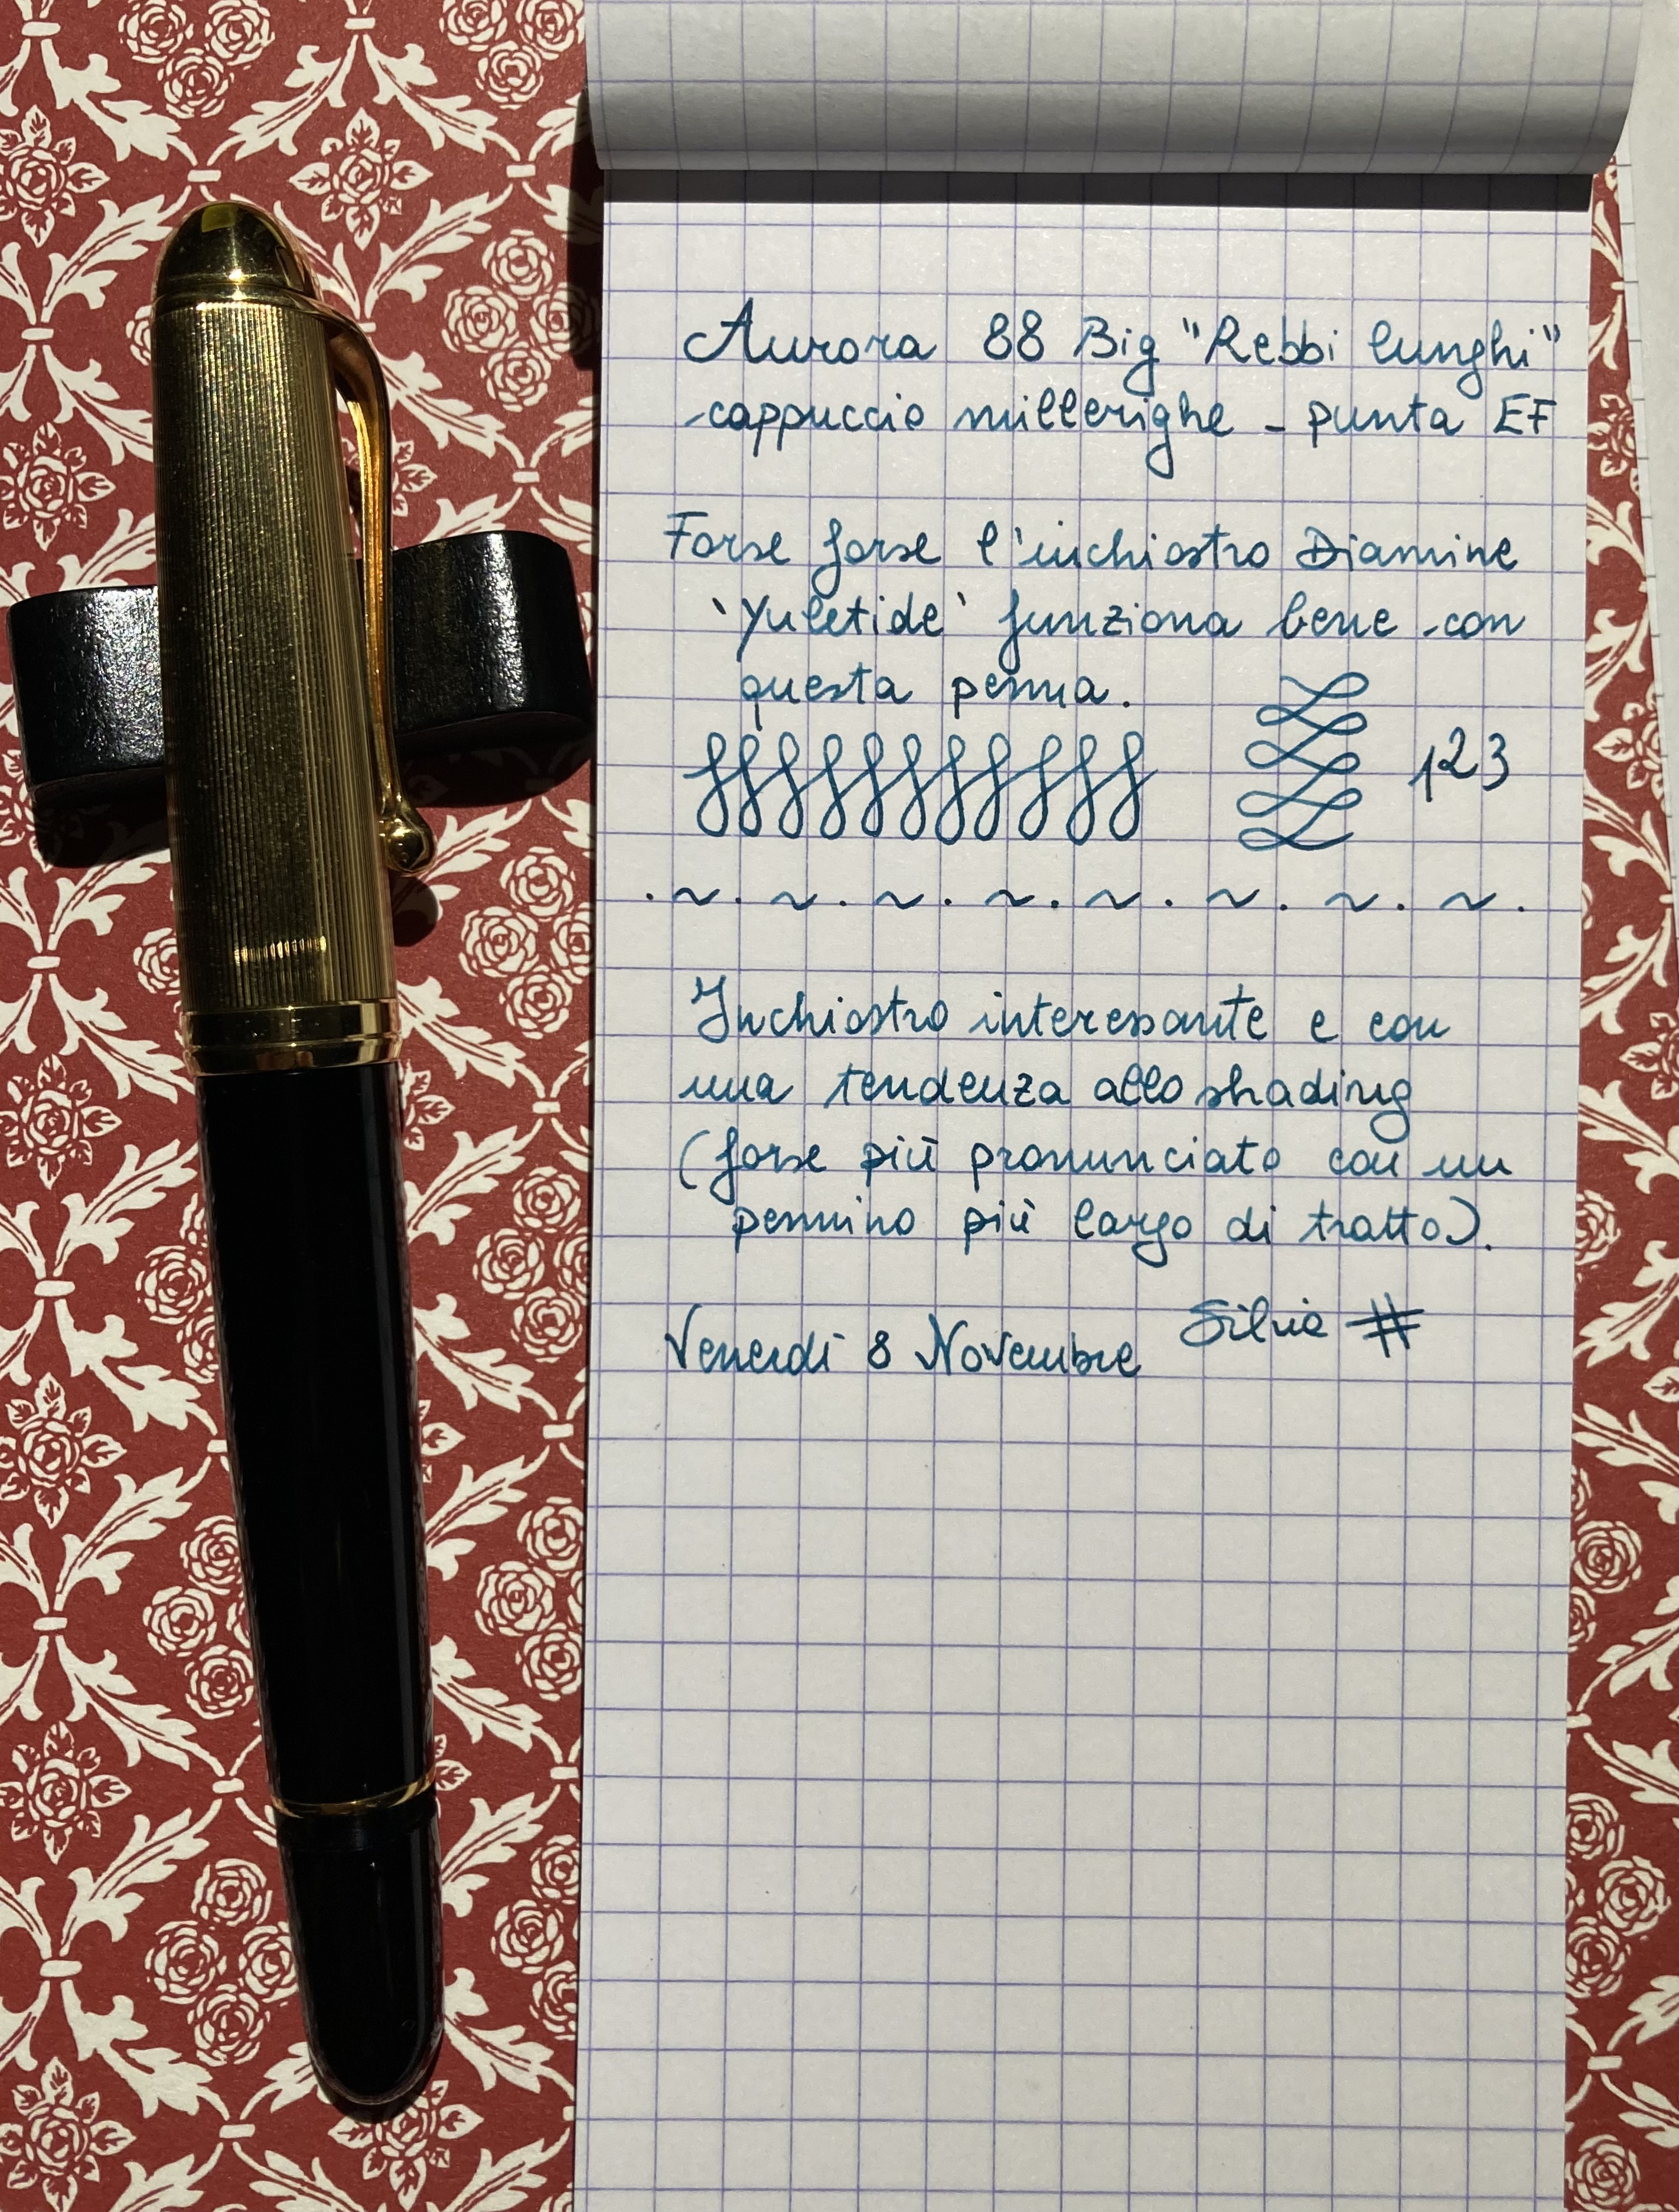 Aurora 88 Big "Rebbi lunghi"
cappuccio millerighe - punta EF
Forse forse l'inchiostro Diamine
'Yuletide' funziona bene con
questa penna.
123
Inchiostro interessante e con
una tendenza allo shading
(forse più pronunciato con un
pennino più largo di tratto).
Silvia #
Venerdì 8 Novembre